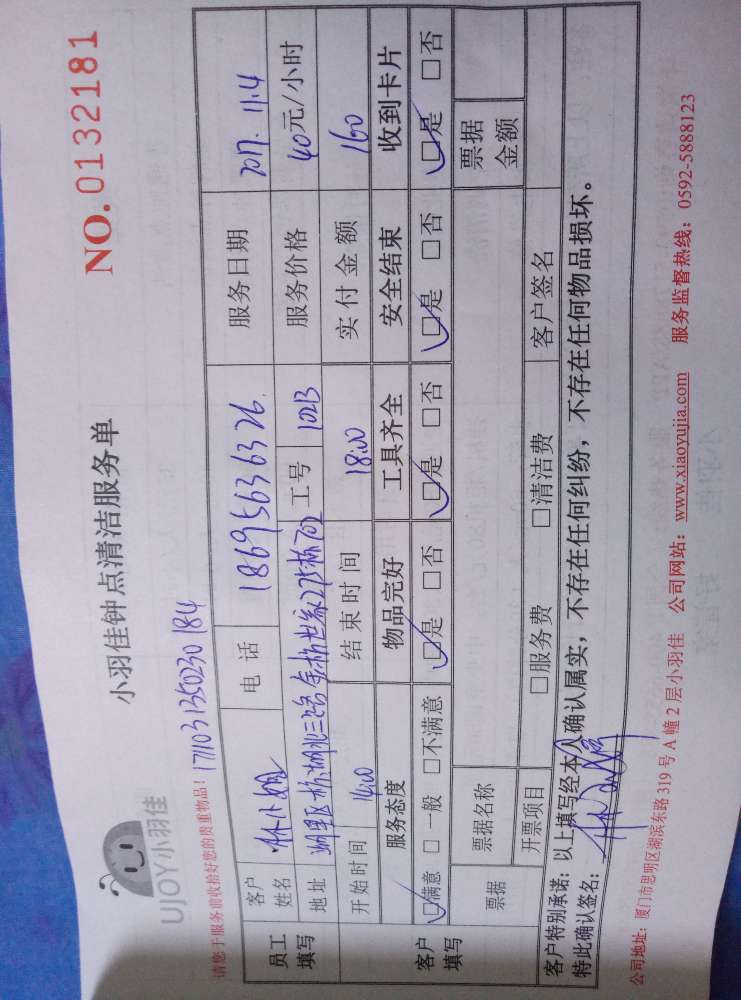 UJOY小羽佳
小羽佳钟点清洁服务单
NO.0132181
请您于服务前收拾好您的贵重物品！171103135023 0184
员工填写
客户姓名 林小姐 电话 18695636326 服务日期 2017.11.4
地址 702 工号 10213 服务价格 40元/小时
开始时间 14:00 结束时间 18:00 实付金额 160
客户填写
服务态度 物品完好 工具齐全 安全结束 收到卡片
☑满意 □一般 □不满意 ☑是 □否 ☑是 □否 ☑是 □否 ☑是 □否
票据 票据名称 票据金额
开票项目 □服务费 □清洁费 客户签名
客户特别承诺：以上填写经本人确认属实，不存在任何纠纷，不存在任何物品损坏。
特此确认签名：
公司地址：厦门市思明区湖滨东路319号A幢2层小羽佳 公司网站：www.xiaoyujia.com 服务监督热线：0592-5888123